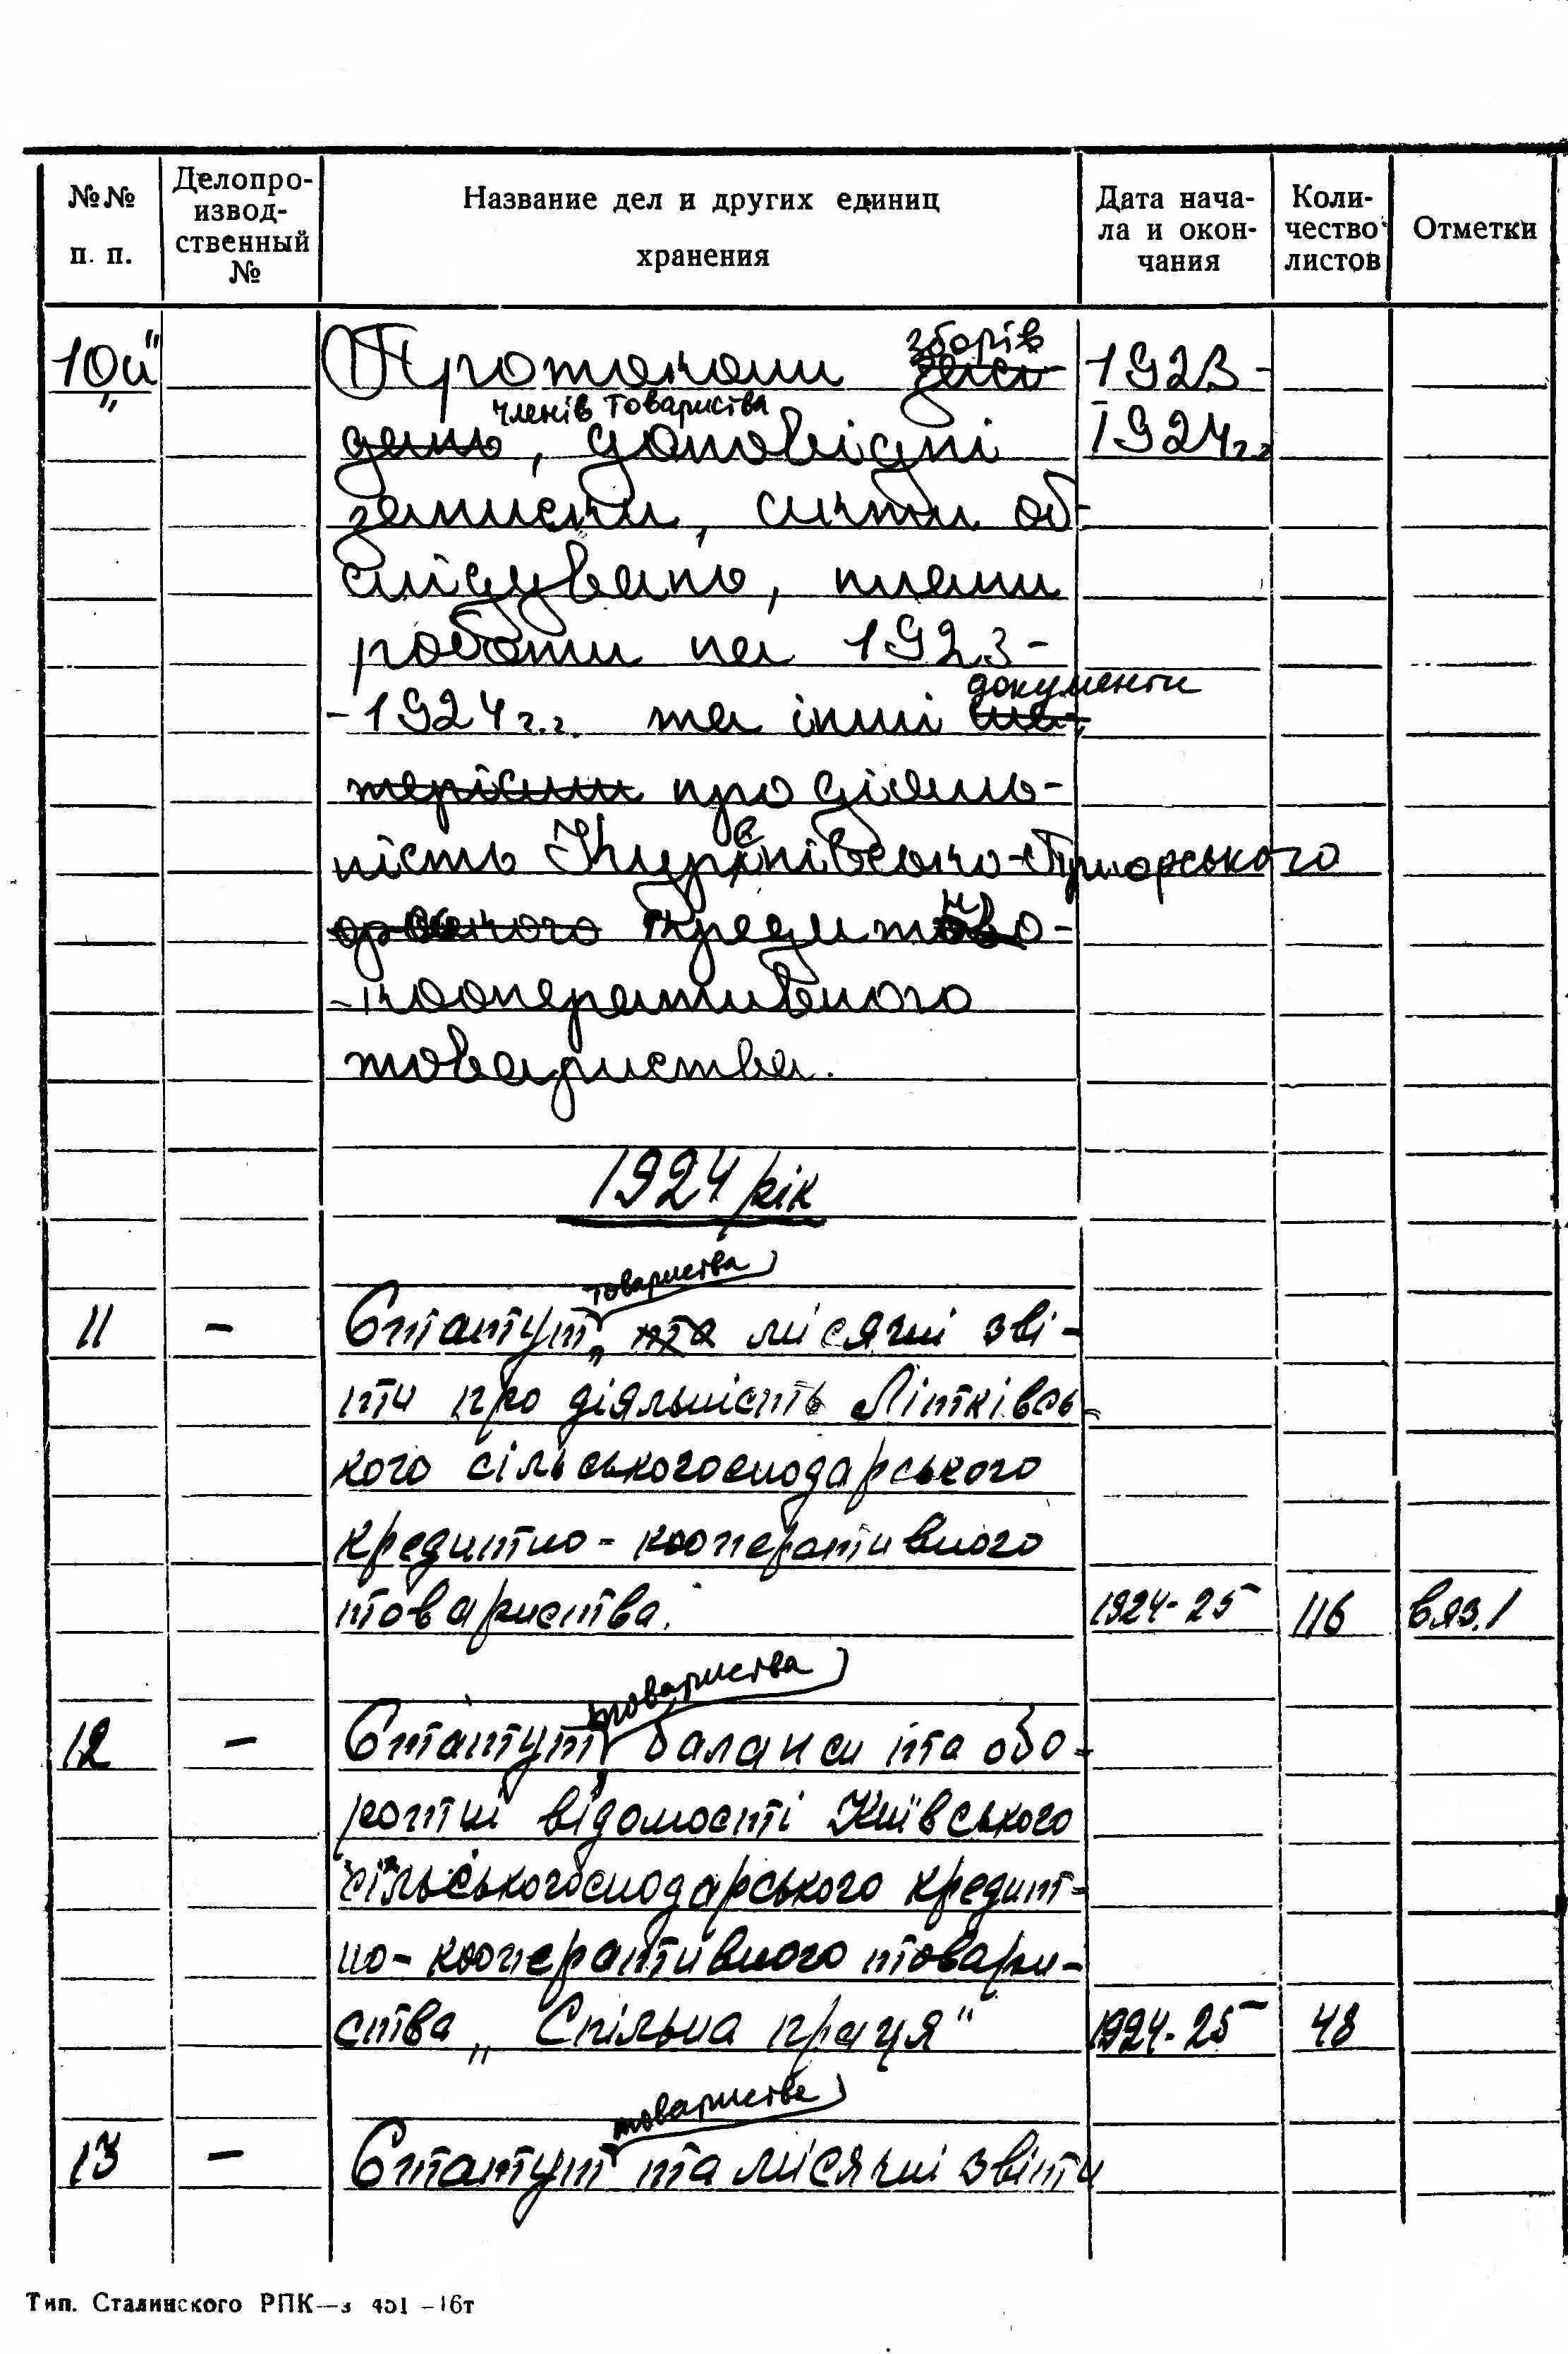 №№ п. п.
Делопро-
извод-
ственный
№
Название дел и других единиц
хранения
Дата нача-
ла и окон-
чания
Коли-
чество
листов
Отметки
зборів
10 "и" Протоколи засі- 1923-
членів товариства
дань, доповідні 1924 г.г.
записки, акти об-
слідувань, плани
роботи на 1923-
документи
-1924 г.г. та інші ма-
теріали про діяль-
ність Куренівсько-Пріорського
кредитно-
-кооперативного
товариства.
1924 рік
товариства
11 - Статут, та місячні зві-
ти про діяльність Літківсь-
кого сільськогосподарського
кредитно-кооперативного
товариства. 1924-25 116 вяз. 1
товариства
12 - Статут, баланси та обо-
ротні відомості Київського
сільськогосподарського кредит-
но-кооперативного товари-
ства „Спільна праця" 1924-25 48
товариства
13 - Статут та місячні звіти
Тип. Сталинского РПК—з 451 —16т